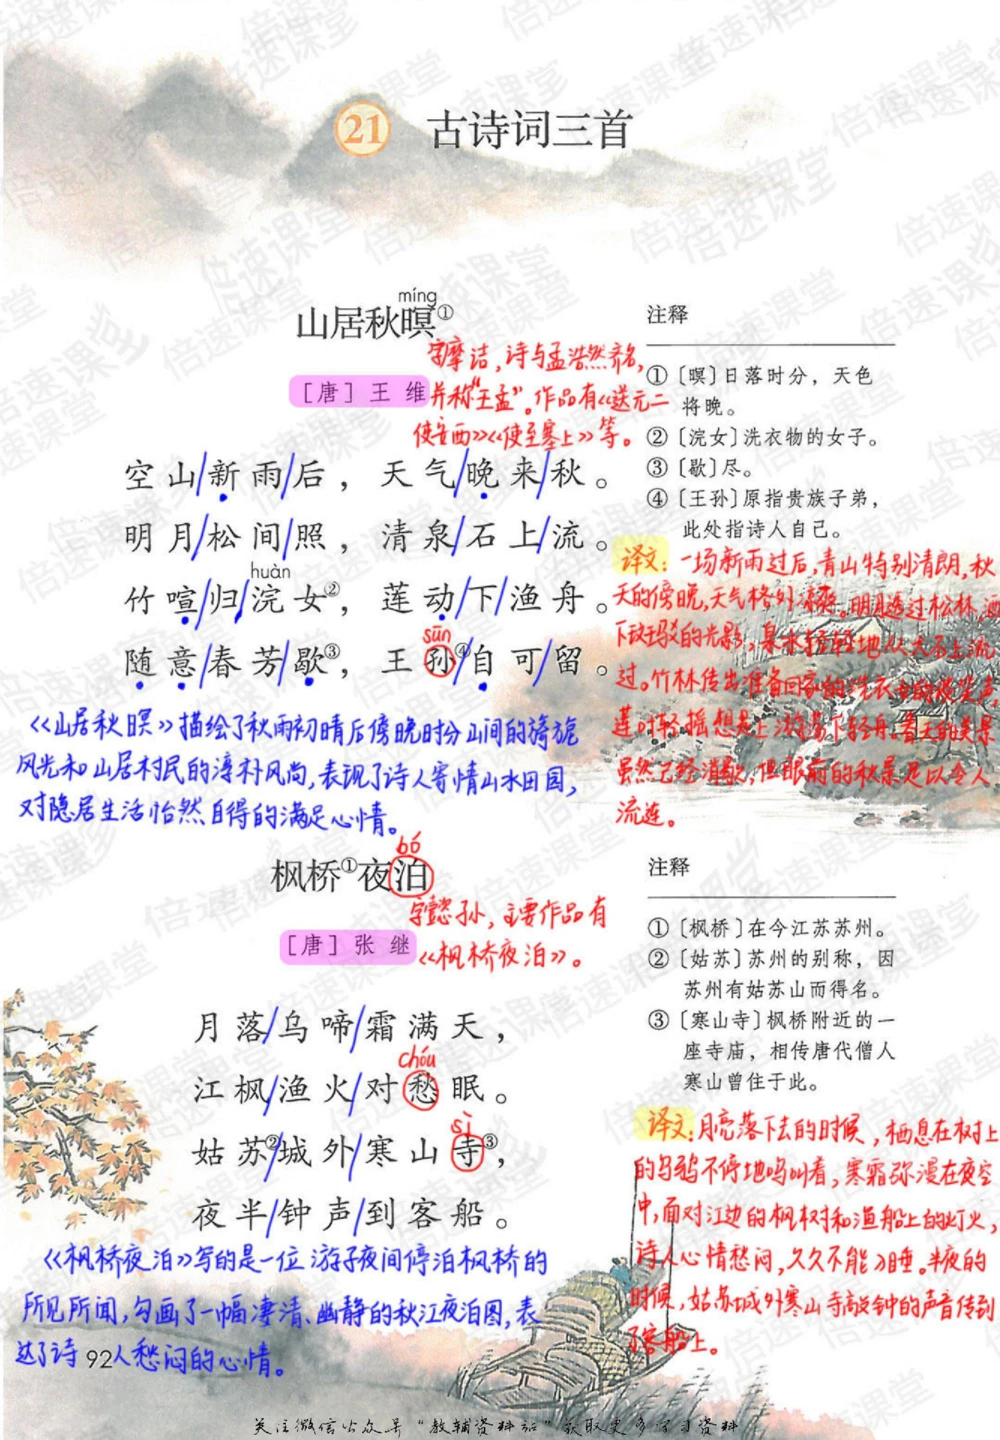 21 古诗词三首
míng
山居秋暝①
[唐] 王 维
字摩诘，诗与孟浩然齐名，
并称“王孟”。作品有《送元二
使安西》《使至塞上》等。
空山/新雨/后，天气/晚来/秋。
明月/松间/照，清泉/石上/流。
huàn
竹喧/归/浣女②，莲动/下/渔舟。
sūn
随意/春芳/歇③，王孙④/自可留。
注释
①〔暝〕日落时分，天色
将晚。
②〔浣女〕洗衣物的女子。
③〔歇〕尽。
④〔王孙〕原指贵族子弟，
此处指诗人自己。
译文：一场新雨过后，青山特别清朗，秋
天的傍晚，天气格外凉爽。明月透过松林，
下斑驳的光影，泉水轻轻地从大石上流
过。竹林传出准备回家的洗衣女的欢笑声，
莲叶轻摇想是上游荡下轻舟。春天的美景
虽然已经消歇，但眼前的秋景足以令人
流连。
《山居秋暝》描绘了秋雨初晴后傍晚时分山间的旖旎
风光和山居村民的淳朴风尚，表现了诗人寄情山水田园，
对隐居生活怡然自得的满足心情。
bó
枫桥①夜泊
[唐] 张 继
字懿孙，主要作品有
《枫桥夜泊》。
月落/乌啼/霜满天，
chóu
江枫/渔火/对愁眠。
sì
姑苏②/城外/寒山寺③，
夜半/钟声/到客船。
注释
①〔枫桥〕在今江苏苏州。
②〔姑苏〕苏州的别称，因
苏州有姑苏山而得名。
③〔寒山寺〕枫桥附近的一
座寺庙，相传唐代僧人
寒山曾住于此。
译文：月亮落下去的时候，栖息在树上
的乌鸦不停地鸣叫着，寒霜弥漫在夜空
中，面对江边的枫树和渔船上的灯火，
诗人心情愁闷，久久不能入睡。半夜的
时候，姑苏城外寒山寺敲钟的声音传到
了客船上。
《枫桥夜泊》写的是一位游子夜间停泊枫桥的
所见所闻，勾画了一幅凄清、幽静的秋江夜泊图，表
达了诗人愁闷的心情。
92
关注微信公众号“教辅资料站”获取更多学习资料
倍速课堂